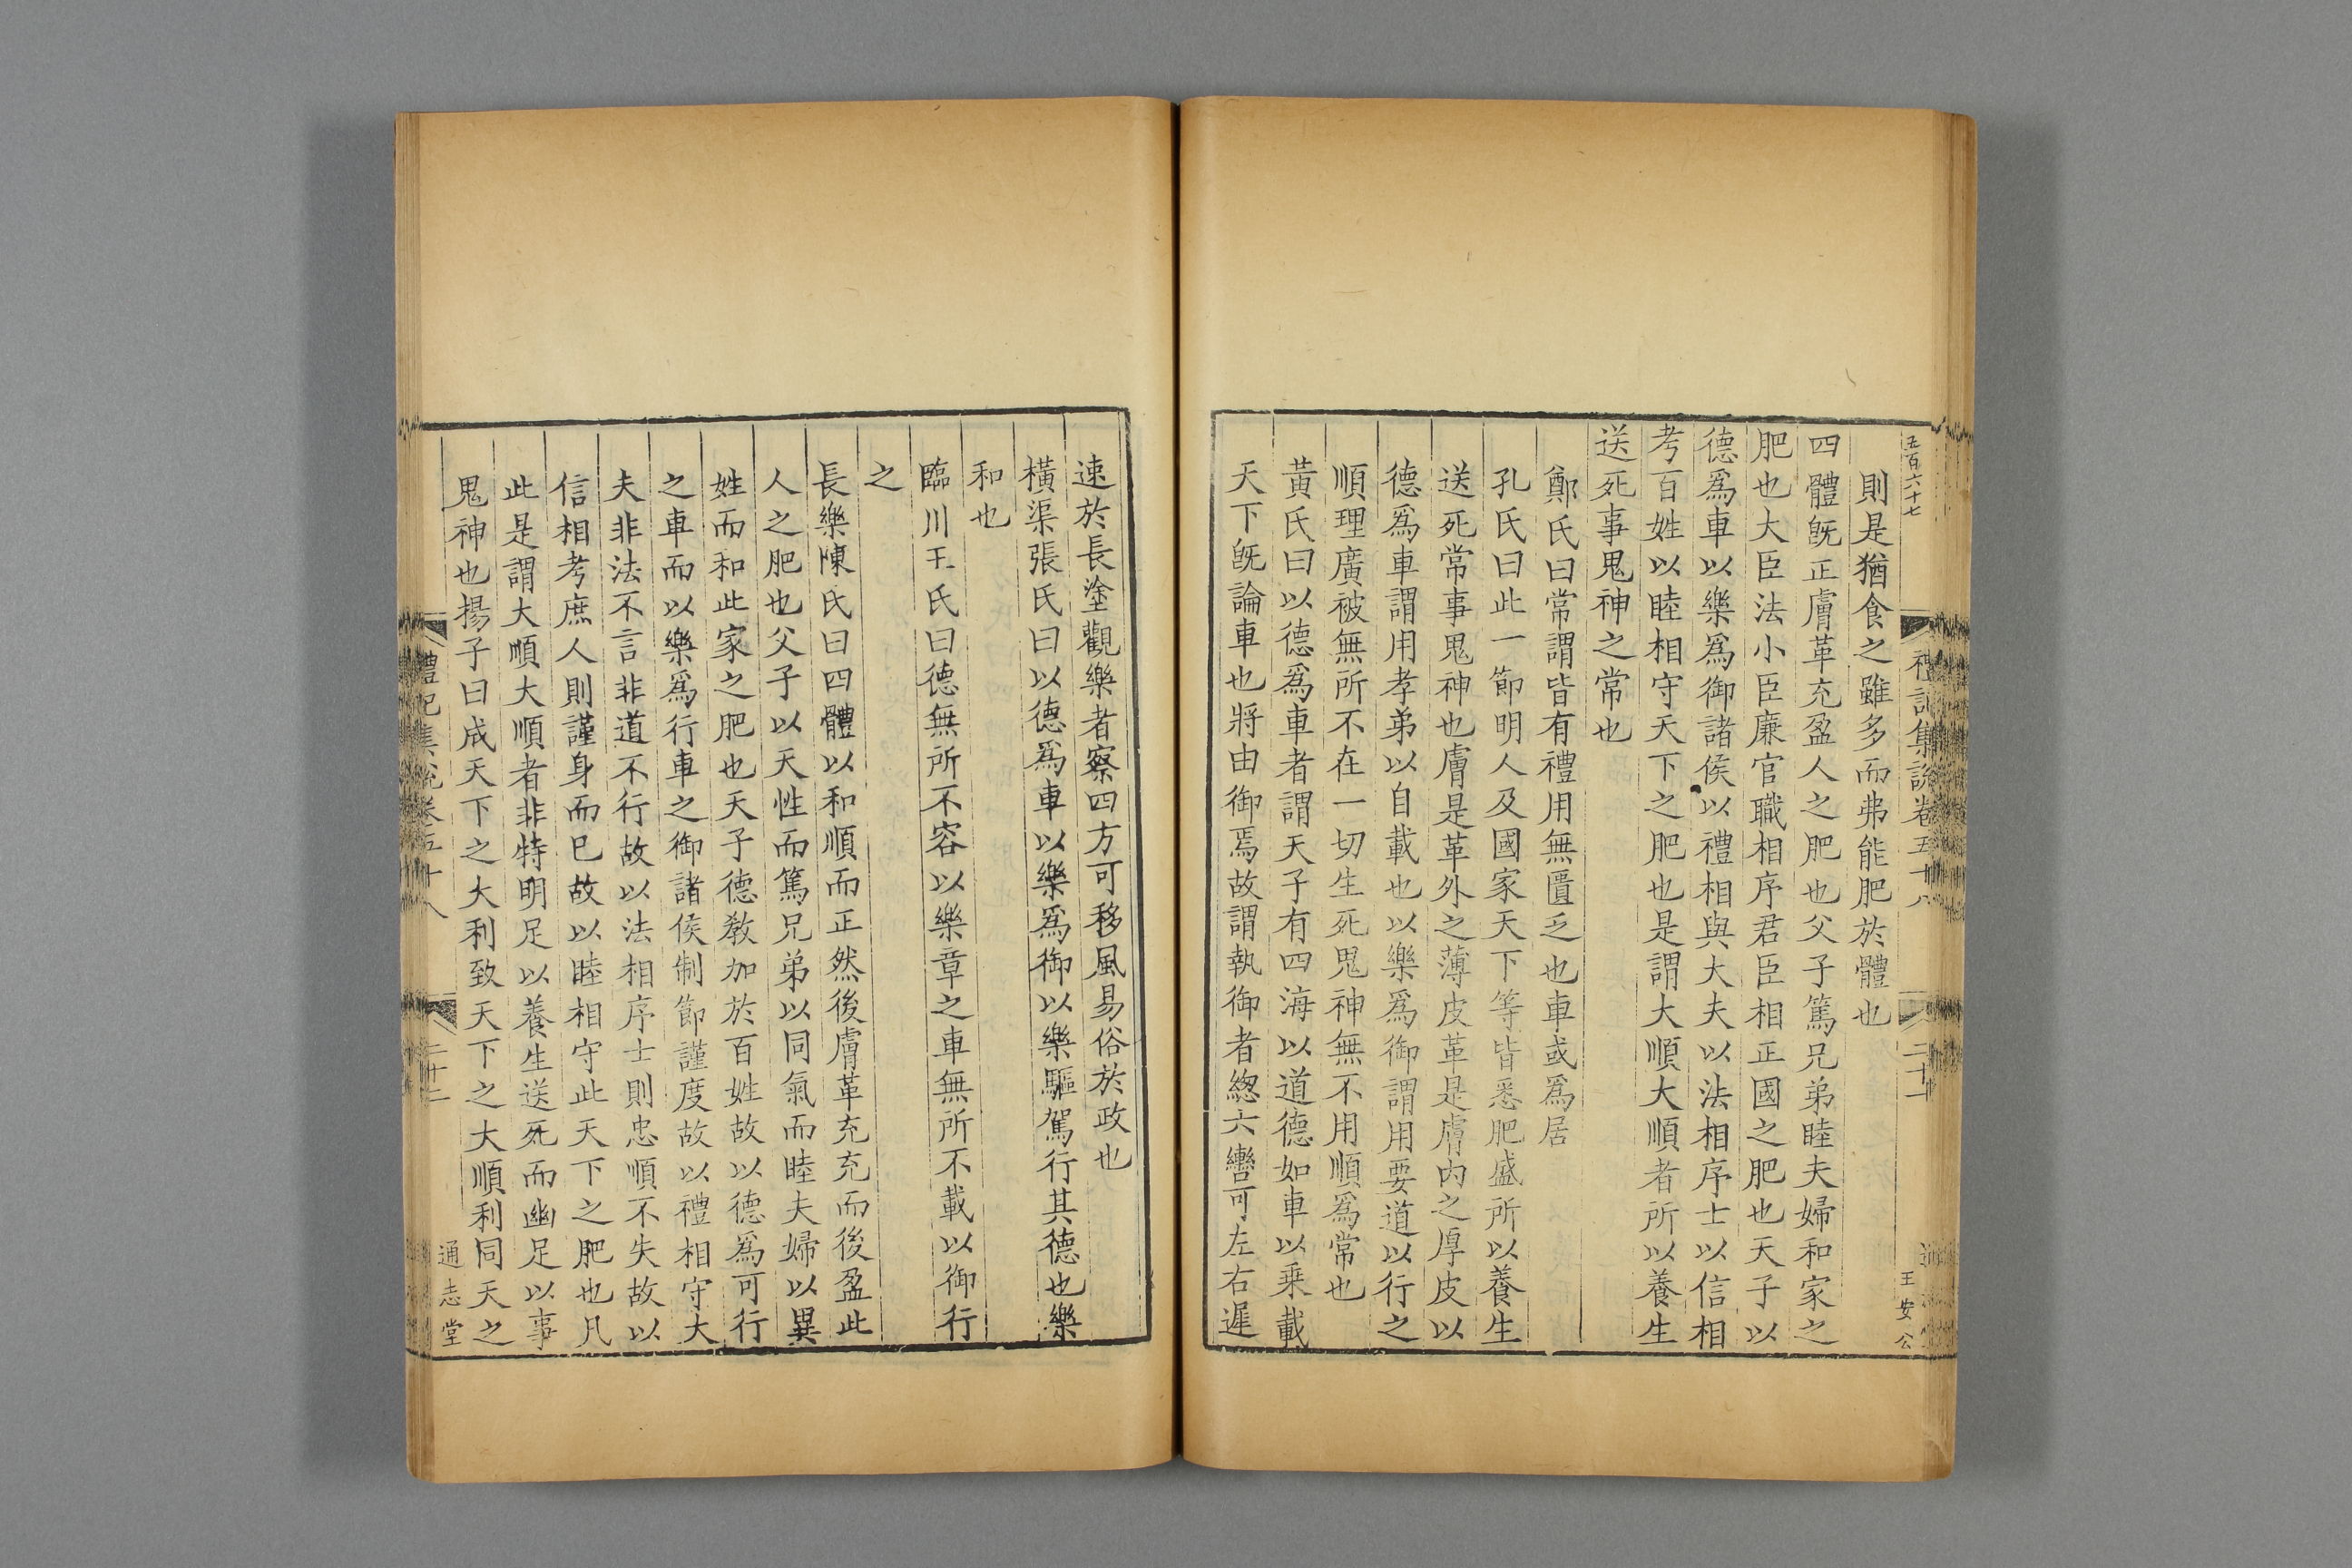 五百六十七
禮記集說卷五十八
二十一
王安公
則是猶食之雖多而弗能肥於體也
四體旣正膚革充盈人之肥也父子篤兄弟睦夫婦和家之
肥也大臣法小臣廉官職相序君臣相正國之肥也天子以
德爲車以樂爲御諸侯以禮相與大夫以法相序士以信相
考百姓以睦相守天下之肥也是謂大順大順者所以養生
送死事鬼神之常也
鄭氏曰常謂皆有禮用無匱乏也車或爲居
孔氏曰此一節明人及國家天下等皆悉肥盛所以養生
送死常事鬼神也膚是革外之薄皮革是膚內之厚皮以
德爲車謂用孝弟以自載也以樂爲御謂用要道以行之
順理廣被無所不在一切生死鬼神無不用順爲常也
黃氏曰以德爲車者謂天子有四海以道德如車以乗載
天下旣論車也將由御焉故謂執御者緫六轡可左右遲
速於長塗觀樂者察四方可移風易俗於政也
橫渠張氏曰以德爲車以樂爲御以樂驅駕行其德也樂
和也
臨川王氏曰德無所不容以樂章之車無所不載以御行
之
長樂陳氏曰四體以和順而正然後膚革充充而後盈此
人之肥也父子以天性而篤兄弟以同氣而睦夫婦以異
姓而和此家之肥也天子德敎加於百姓故以德爲可行
之車而以樂爲行車之御諸侯制節謹度故以禮相守大
夫非法不言非道不行故以法相序士則忠順不失故以
信相考庶人則謹身而已故以睦相守此天下之肥也凡
此是謂大順大順者非特明足以養生送死而幽足以事
鬼神也揚子曰成天下之大利致天下之大順利同天之
禮記集說卷五十八
二十二
通志堂